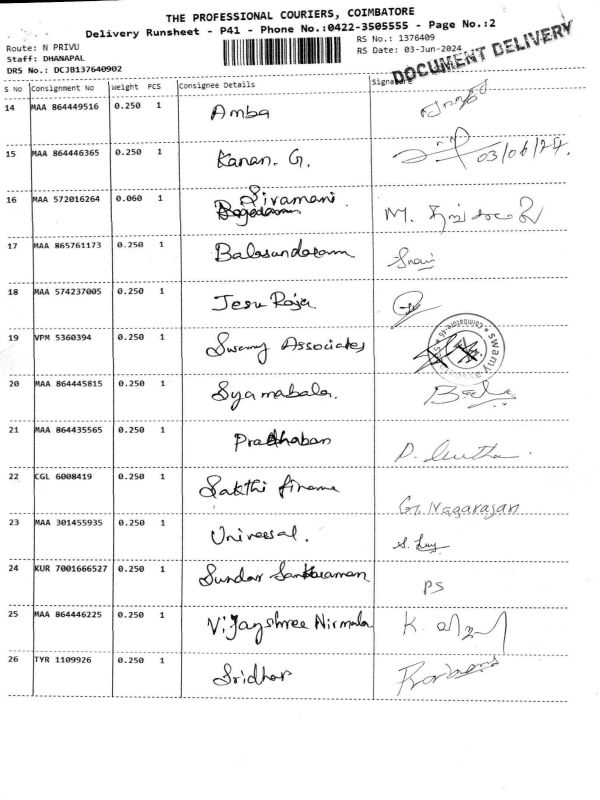 THE PROFESSIONAL COURIERS, COIMBATORE
Delivery Runsheet - P41 - Phone No.:0422-3505555 - Page No.:2
Route: N PRIVU
RS No.: 1376409
Staff: DHANAPAL
RS Date: 03-Jun-2024
DRS No.: DCJB137640902
DOCUMENT DELIVERY
S No Consignment No Weight PCS Consignee Details Signature
14 MAA 864449516 0.250 1 Amba
15 MAA 864446365 0.250 1 Kanan. G. 03/06/24.
16 MAA 572016264 0.060 1 Sivamani. M.
17 MAA 865761173 0.250 1 Balasundaram
18 MAA 574237005 0.250 1 Jesu Raja
19 VPM 5360394 0.250 1 Swamy Associates
20 MAA 864445815 0.250 1 Syamabala.
21 MAA 864435565 0.250 1 Prabhaban
22 CGL 6008419 0.250 1 Sakthi finance G. Nagarajan
23 MAA 301455935 0.250 1 Universal.
24 KUR 7001666527 0.250 1 Sundar Sankaraman PS
25 MAA 864446225 0.250 1 Vijayshree Nirmala K.
26 TYR 1109926 0.250 1 Sridhar